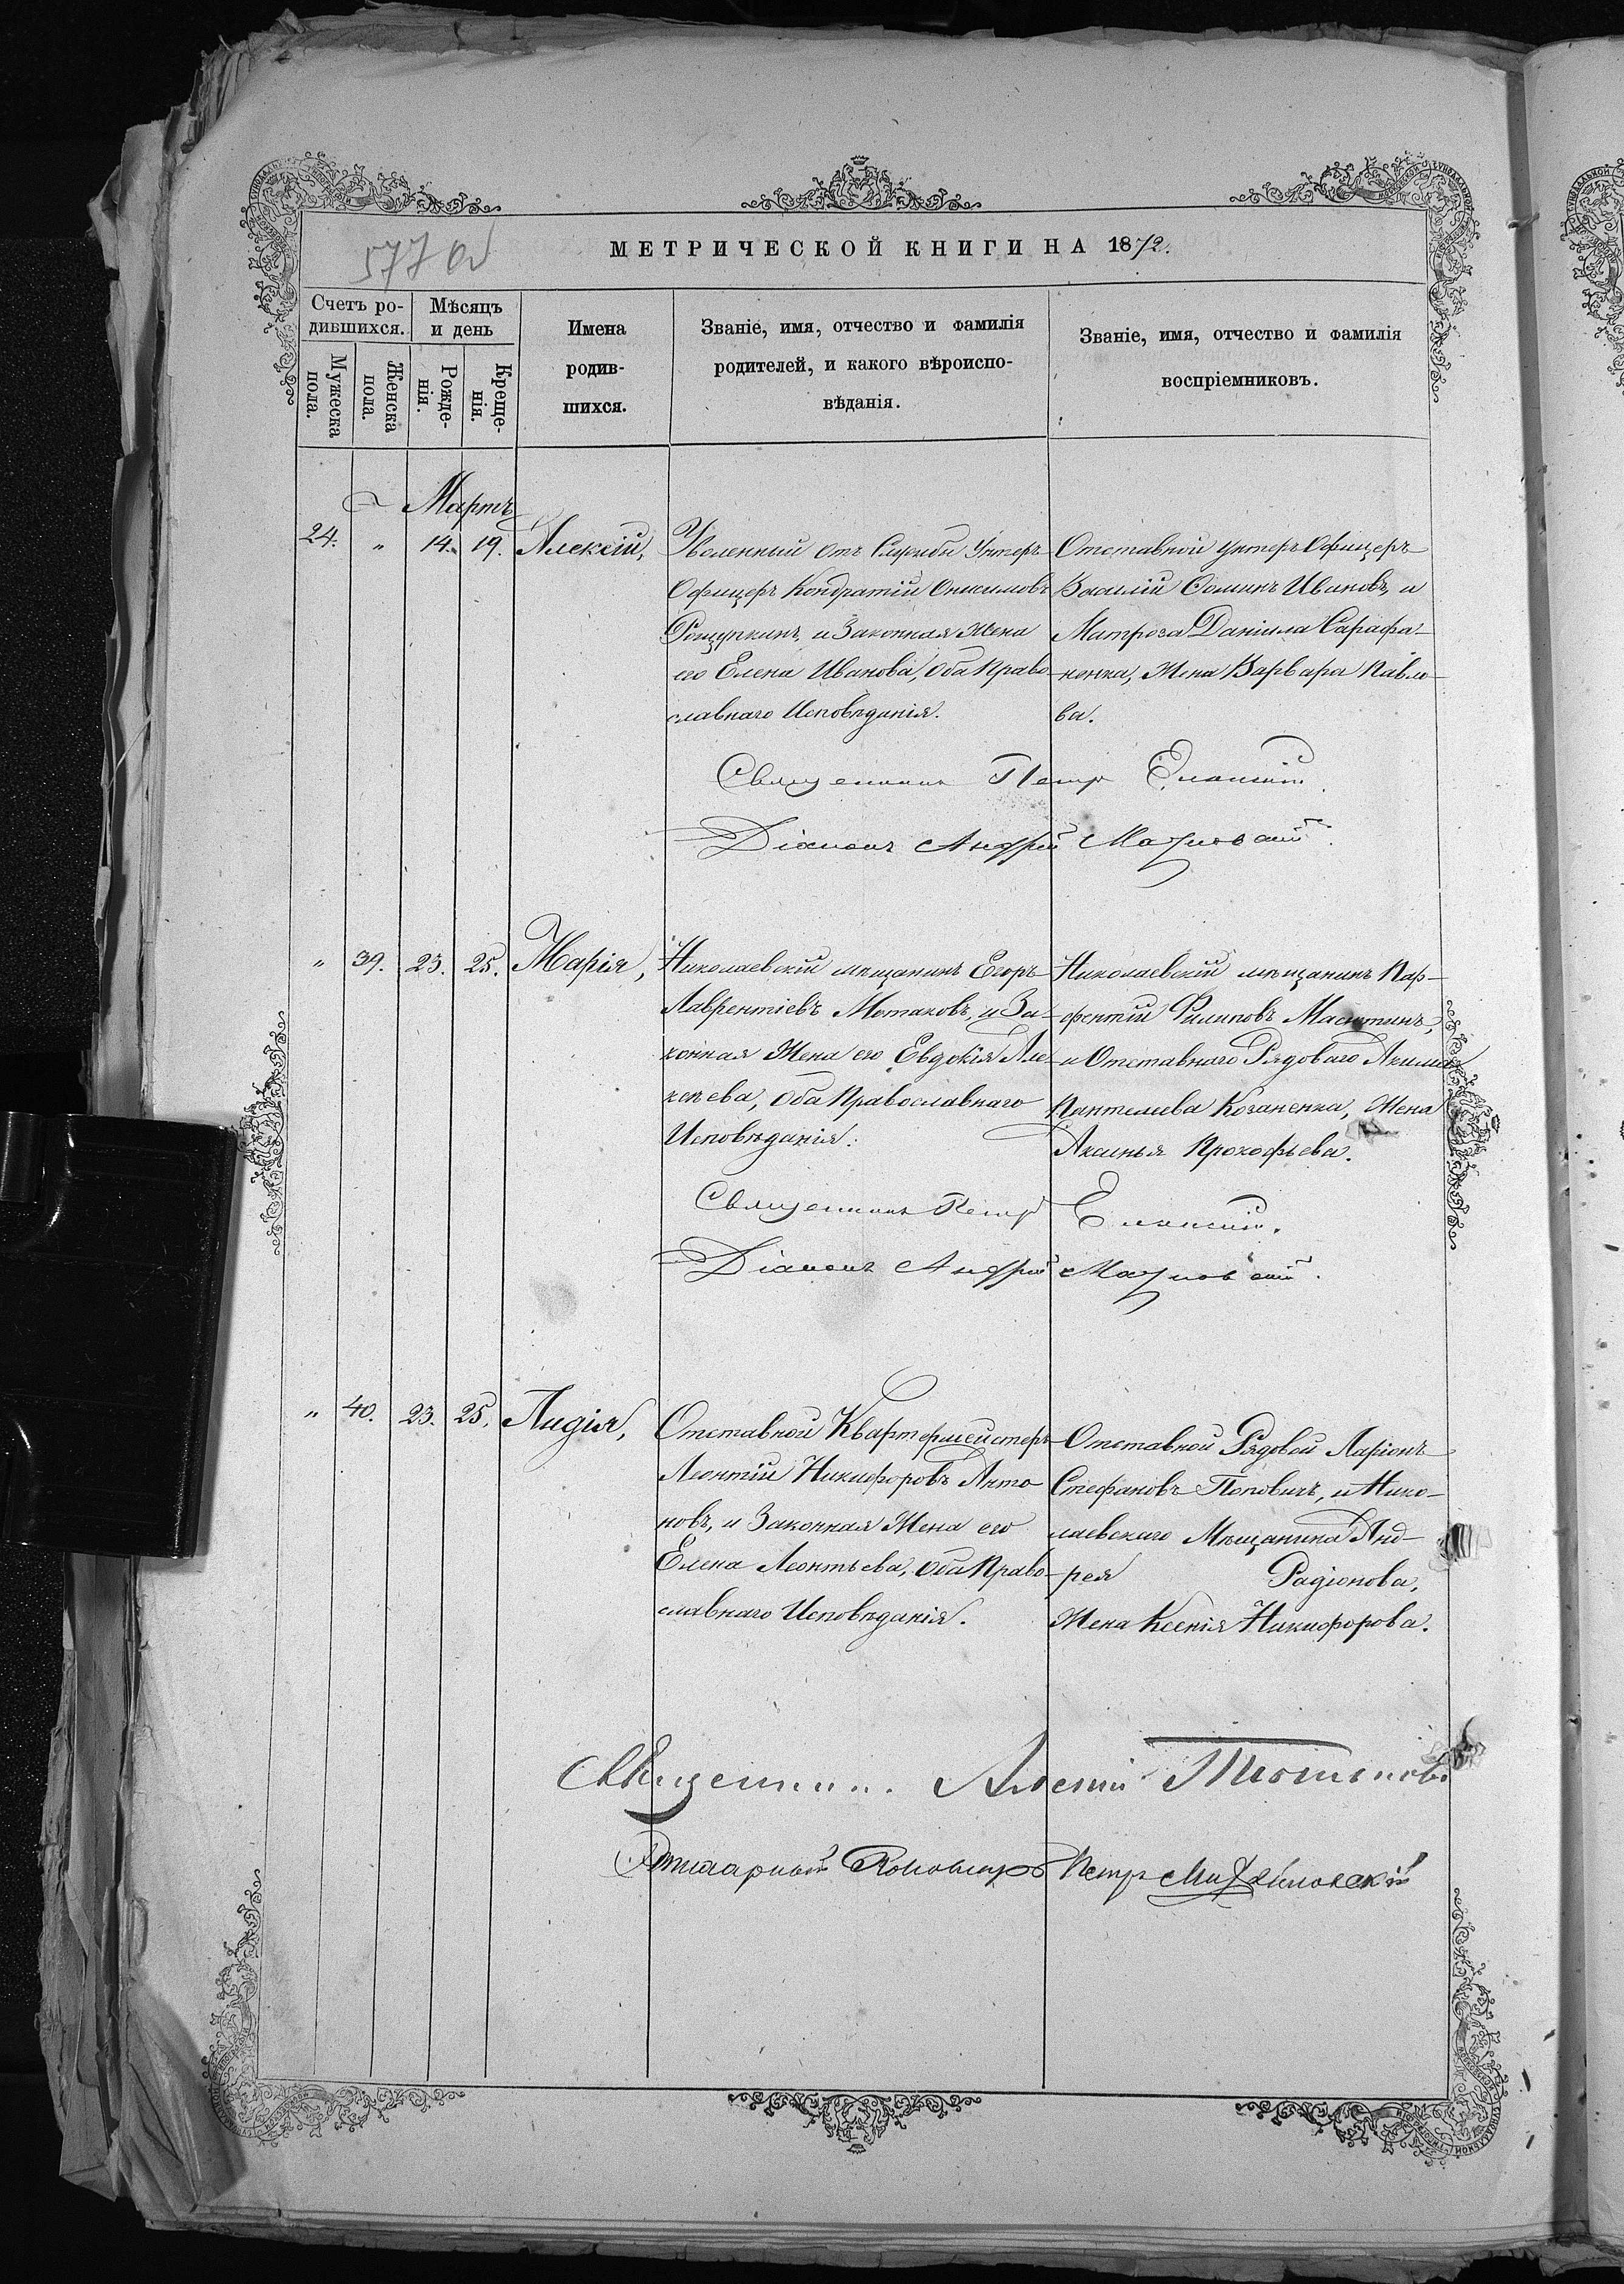 577 об
МЕТРИЧЕСКОЙ КНИГИ НА 1872.
Счетъ ро-
дившихся.
Мѣсяцъ
и день
Мужеска
пола.
Женска
пола.
Рожде-
нія.
Креще-
нія.
Имена
родив-
шихся.
Званіе, имя, отчество и фамилія
родителей, и какого вѣроиспо-
вѣданія.
Званіе, имя, отчество и фамилія
воспріемниковъ.
Мартъ
24. „ 14. 19. Алексій,
Уволенный отъ Службы Унтеръ
Офицеръ Кондратій Онисимовъ
Рощупкинъ, и Законная Жена
его Елена Иванова, Оба Право-
славнаго Исповѣданія.
Отставной унтеръ Офицеръ
Василій Иванов, и
Матроса Даніила Сарафа-
ненка, Жена Варвара Павло-
ва.
Священникъ Петръ
Діаконъ Андрей
„ 39. 23. 25. Марія,
Николаевскій мѣщанинъ Егоръ
Лаврентіевъ Мотаковъ, и За-
конная Жена его Евдокія Але-
ксѣева, Оба Православнаго
Исповѣданія.
Николаевскій мѣщанинъ Пар-
фентій Филиповъ
и Отставнаго Рядоваго Акима
Пантелиева Коханенка, Жена
Аксинья Прокофьева.
Священникъ Петръ
Діаконъ Андрей
„ 40. 23. 25. Лидія,
Отставной Квартермейстеръ
Леонтій Никифоровъ Анто-
новъ, и Законная Жена его
Елена Леонтьева, Оба Право-
славнаго Исповѣданія.
Отставной Рядовой Ларіонъ
Стефановъ Поповичъ, и Нико-
лаевскаго Мѣщанина Анд-
рея Радіонова,
Жена Ксенія Никифорова.
Священникъ
Петръ Михайловскій